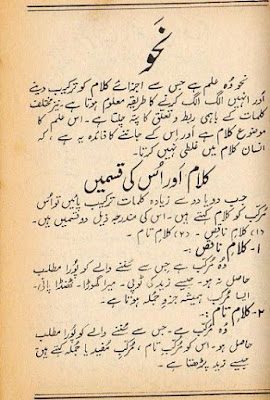 نحو
نحو وہ علم ہے جس سے اجزائے کلام کو ترکیب دینے
اور انہیں الگ الگ کرنے کا طریقہ معلوم ہوتا ہے۔ نیز مختلف
کلمات کے باہمی ربط و تعلق کا پتہ چلتا ہے۔ اس علم کا
موضوع کلام ہے اور اس کے جاننے کا فائدہ یہ ہے، کہ
انسان کلام میں غلطی نہیں کرتا۔
کلام اور اُس کی قسمیں
جب دو یا دو سے زیادہ کلمات ترکیب پائیں تو اُس
مرکب کو کلام کہتے ہیں۔ اس کی مندرجہ ذیل دو قسمیں ہیں۔
(۱) کلام ناقص۔ (۲) کلام تام۔
۱- کلام ناقص :-
وہ مرکب ہے جس سے سُننے والے کو پُورا مطلب
حاصل نہ ہو۔ جیسے زید کی ٹوپی۔ میرا گھوڑا۔ ٹھنڈا پانی۔
ایسا مُرکب ہمیشہ جزوِ جملہ ہوتا ہے۔
۲- کلام تام :-
وہ مُرکب ہے۔ جس سے سُننے والے کو پورا مطلب
حاصل ہو۔ اس کو مرکبِ تام، مرکبِ مفید یا جُملہ کہتے ہیں
جیسے زید پڑھتا ہے۔